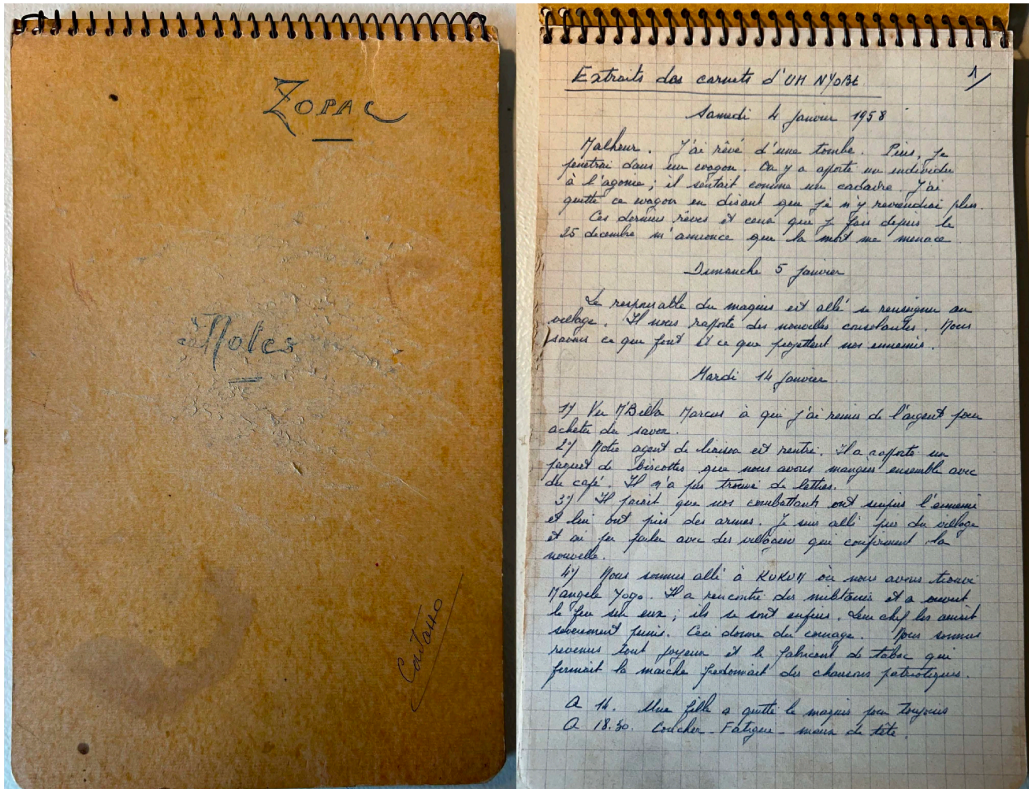 ZOPAC
Notes
Extraits des carnets d'UM NYOBE
1/
Samedi 4 Janvier 1958
Malheur. J'ai rêvé d'une tombe. Puis, je
penetrai dans un wagon. On y a apporté un individu
à l'agonie ; il sentait comme un cadavre. J'ai
quitté ce wagon en disant que je n'y reviendrai plus.
Ces derniers rêves et ceux que je fais depuis le
25 decembre m'annonce que la mort me menace.
Dimanche 5 Janvier
Le responsable du maquis est allé se renseigner au
village. Il nous rapporte des nouvelles consolantes. Nous
savons ce que font et ce que projettent nos ennemis.
Mardi 14 Janvier
1°/ Vu M'Bella Marcus à qui j'ai remis de l'argent pour
acheter du savon.
2°/ Notre agent de liaison est rentré. Il a rapporté un
paquet de biscottes que nous avons mangées ensemble avec
du café. Il n'a pas trouvé de lettres.
3°/ Il parait que nos combattants ont surpris l'ennemi
et lui ont pris des armes. Je suis allé près du village
et ai pu parler avec des villageois qui confirment la
nouvelle.
4°/ Nous sommes allé à KUKUM où nous avons trouvé
Mangele Yogo. Il a rencontré des militaires et a ouvert
le feu sur eux ; ils se sont enfuis. Leur chef les aurait
sévèrement punis. Ceci donne du courage. Nous sommes
revenus tout joyeux et le fabricant de tabac qui
fermait la marche fredonnait des chansons patriotiques.
A 16. Une fille a quitté le maquis pour toujours
A 18.30. Coucher - Fatigue - maux de tête.